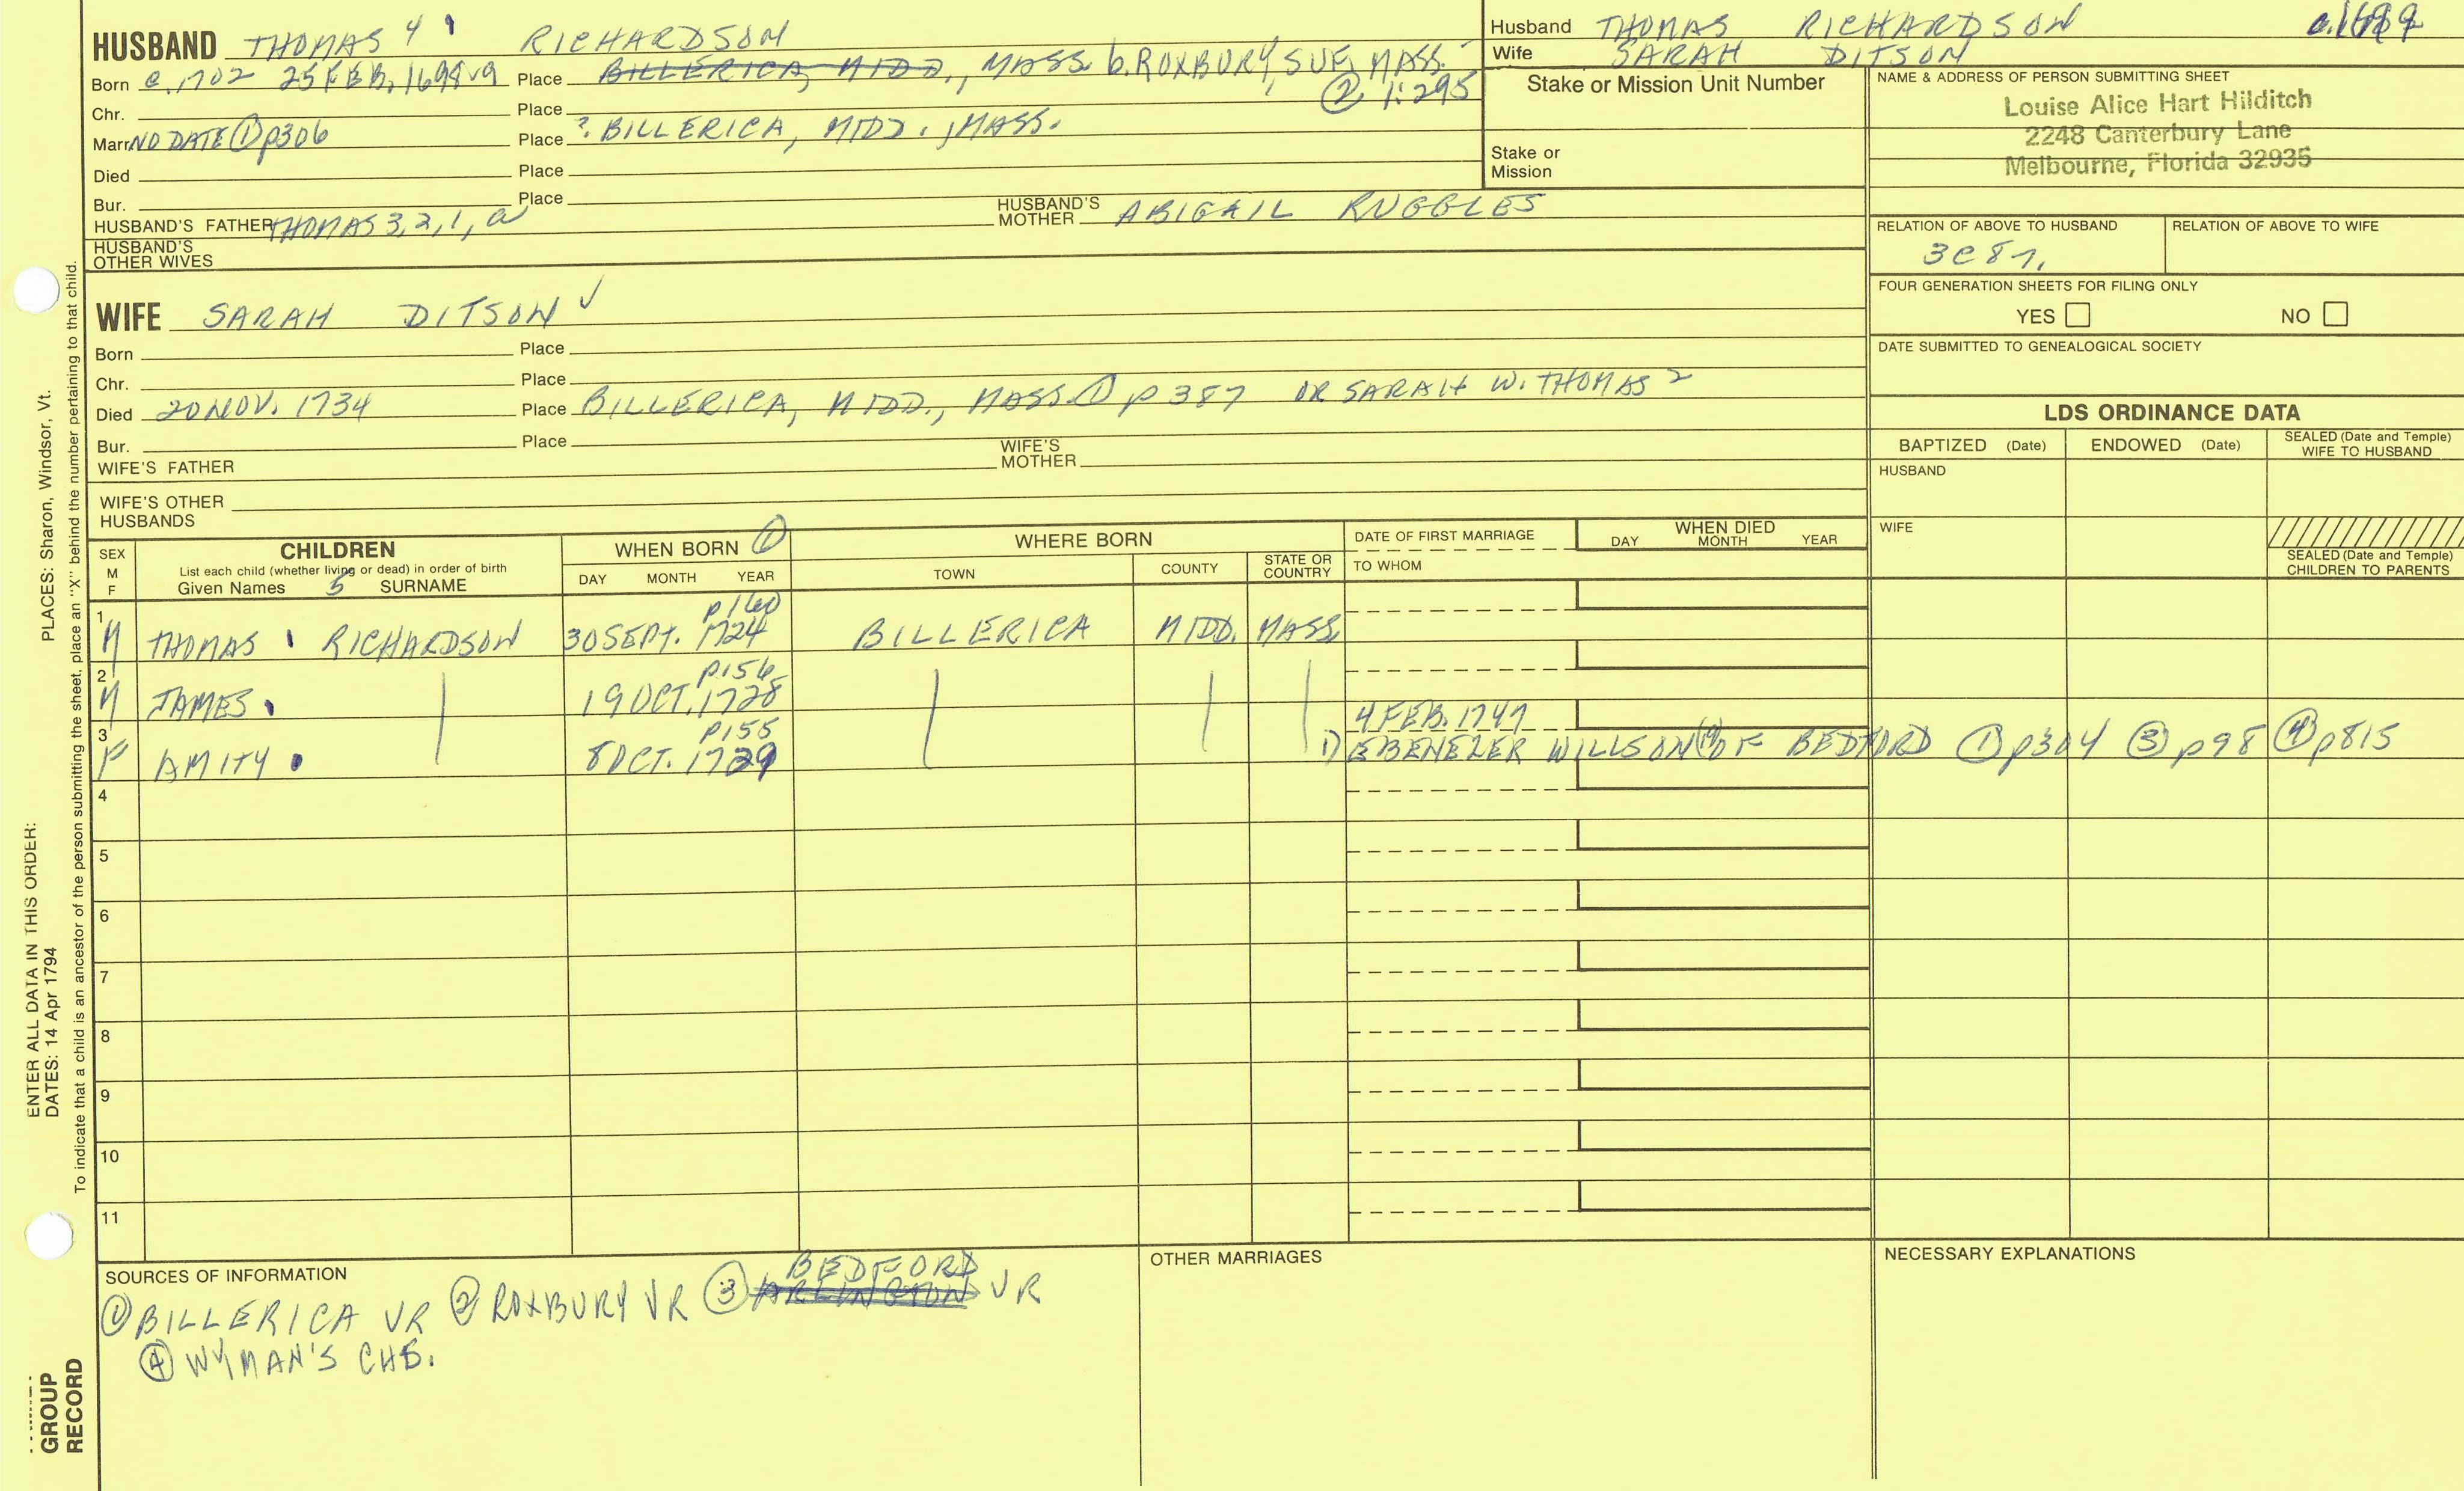 HUSBAND THOMAS 4 RICHARDSON
Born c. 1702 25 FEB. 1698v9 Place BILLERICA, MIDD., MASS. b. ROXBURY, SUF. MASS.
② 1:295
Chr. Place
Marr. NO DATE ① p306 Place ? BILLERICA, MIDD., MASS.
Died Place
Bur. Place
HUSBAND'S FATHER THOMAS 3, 2, 1, a HUSBAND'S MOTHER ABIGAIL RUGGLES
HUSBAND'S OTHER WIVES
WIFE SARAH DITSON ✓
Born Place
Chr. Place
Died 20 NOV. 1734 Place BILLERICA, MIDD., MASS. ① p 387 OR SARAH W. THOMAS 2
Bur. Place
WIFE'S FATHER WIFE'S MOTHER
WIFE'S OTHER HUSBANDS
Husband THOMAS RICHARDSON
Wife SARAH DITSON
Stake or Mission Unit Number
Stake or Mission
NAME & ADDRESS OF PERSON SUBMITTING SHEET
Louise Alice Hart Hilditch
2248 Canterbury Lane
Melbourne, Florida 32935
RELATION OF ABOVE TO HUSBAND RELATION OF ABOVE TO WIFE
FOUR GENERATION SHEETS FOR FILING ONLY
YES NO
DATE SUBMITTED TO GENEALOGICAL SOCIETY
LDS ORDINANCE DATA
BAPTIZED (Date) ENDOWED (Date) SEALED (Date and Temple) WIFE TO HUSBAND
HUSBAND
WIFE
SEALED (Date and Temple) CHILDREN TO PARENTS
SEX M F
CHILDREN
List each child (whether living or dead) in order of birth
Given Names 5 SURNAME
WHEN BORN ①
DAY MONTH YEAR
WHERE BORN
TOWN COUNTY STATE OR COUNTRY
DATE OF FIRST MARRIAGE
TO WHOM
WHEN DIED
DAY MONTH YEAR
p160
1 M THOMAS RICHARDSON 30 SEPT. 1724 BILLERICA MIDD. MASS.
p.156
2 M JAMES 19 OCT. 1728
p155 4 FEB. 1747
3 F AMITY 8 OCT. 1729 1) EBENEZER WILLSON OF BEDFORD ① p304 ③ p98 ④ p815
4
5
6
7
8
9
10
11
SOURCES OF INFORMATION
BEDFORD
① BILLERICA VR ② ROXBURY VR ③ ARLINGTON VR
④ WYMAN'S CHS.
OTHER MARRIAGES
NECESSARY EXPLANATIONS
PLACES: Sharon, Windsor, Vt.
ENTER ALL DATA IN THIS ORDER:
DATES: 14 Apr 1794
To indicate that a child is an ancestor of the person submitting the sheet, place an "X" behind the number pertaining to that child.
GROUP
RECORD